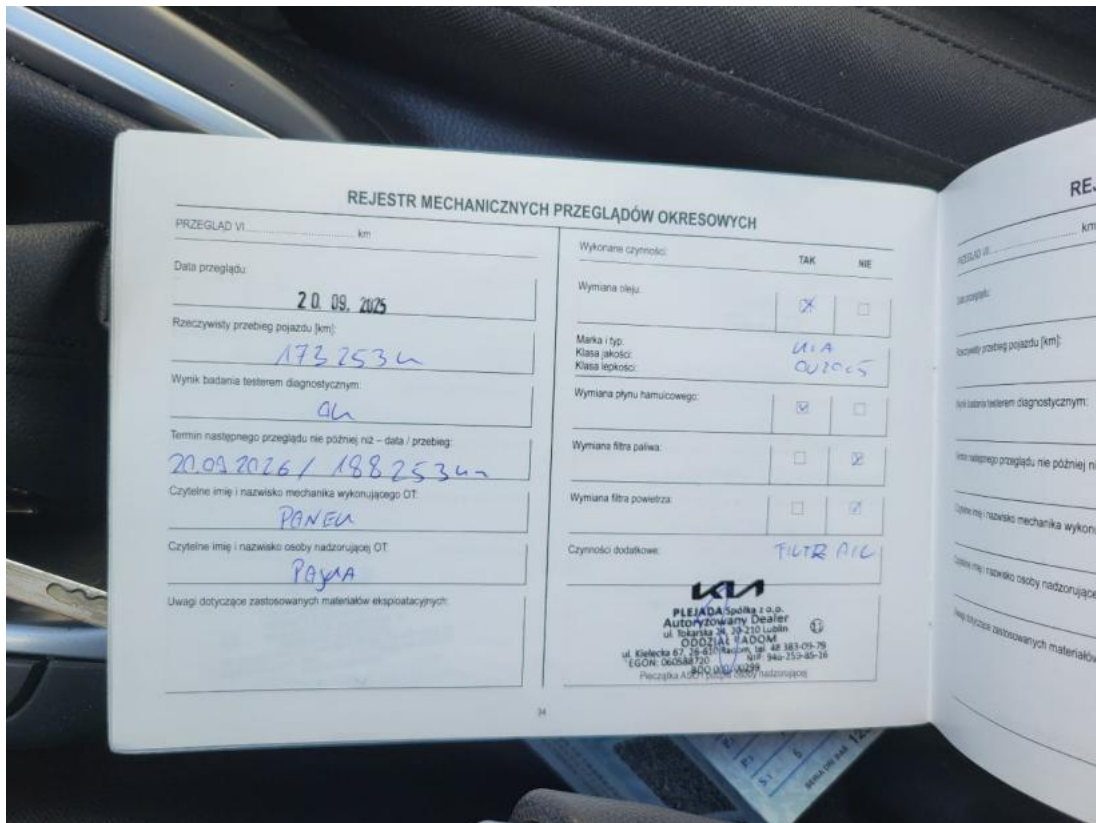 REJESTR MECHANICZNYCH PRZEGLĄDÓW OKRESOWYCH
PRZEGLĄD VI km
Data przeglądu:
20. 09. 2025
Rzeczywisty przebieg pojazdu [km]:
173253
Wynik badania testerem diagnostycznym:
Termin następnego przeglądu nie później niż – data / przebieg:
20.09.2026 / 188253
Czytelne imię i nazwisko mechanika wykonującego OT:
Czytelne imię i nazwisko osoby nadzorującej OT:
Uwagi dotyczące zastosowanych materiałów eksploatacyjnych:
Wykonane czynności: TAK NIE
Wymiana oleju:
Marka i typ: KIA
Klasa jakości:
Klasa lepkości:
Wymiana płynu hamulcowego:
Wymiana filtra paliwa:
Wymiana filtra powietrza:
Czynności dodatkowe: FILTR
KIA
PLEJADA Spółka z o.o.
Autoryzowany Dealer
ul. Tokarska 20-210 Lublin
ODDZIAŁ RADOM
ul. Kielecka 67, tel. 48 383-09-79
Pieczątka
34
REJ
km
Data przeglądu:
Rzeczywisty przebieg pojazdu [km]:
Wynik badania testerem diagnostycznym:
Termin następnego przeglądu nie później ni
Czytelne imię i nazwisko mechanika wykonu
Czytelne imię i nazwisko osoby nadzorujące
Uwagi dotyczące zastosowanych materiałów